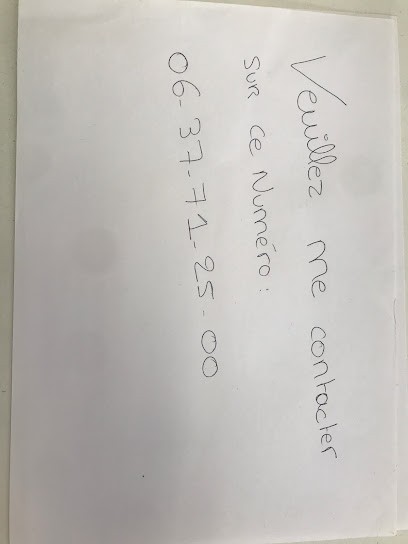 Veuillez me contacter
sur ce Numéro :
06-37-71-25-00